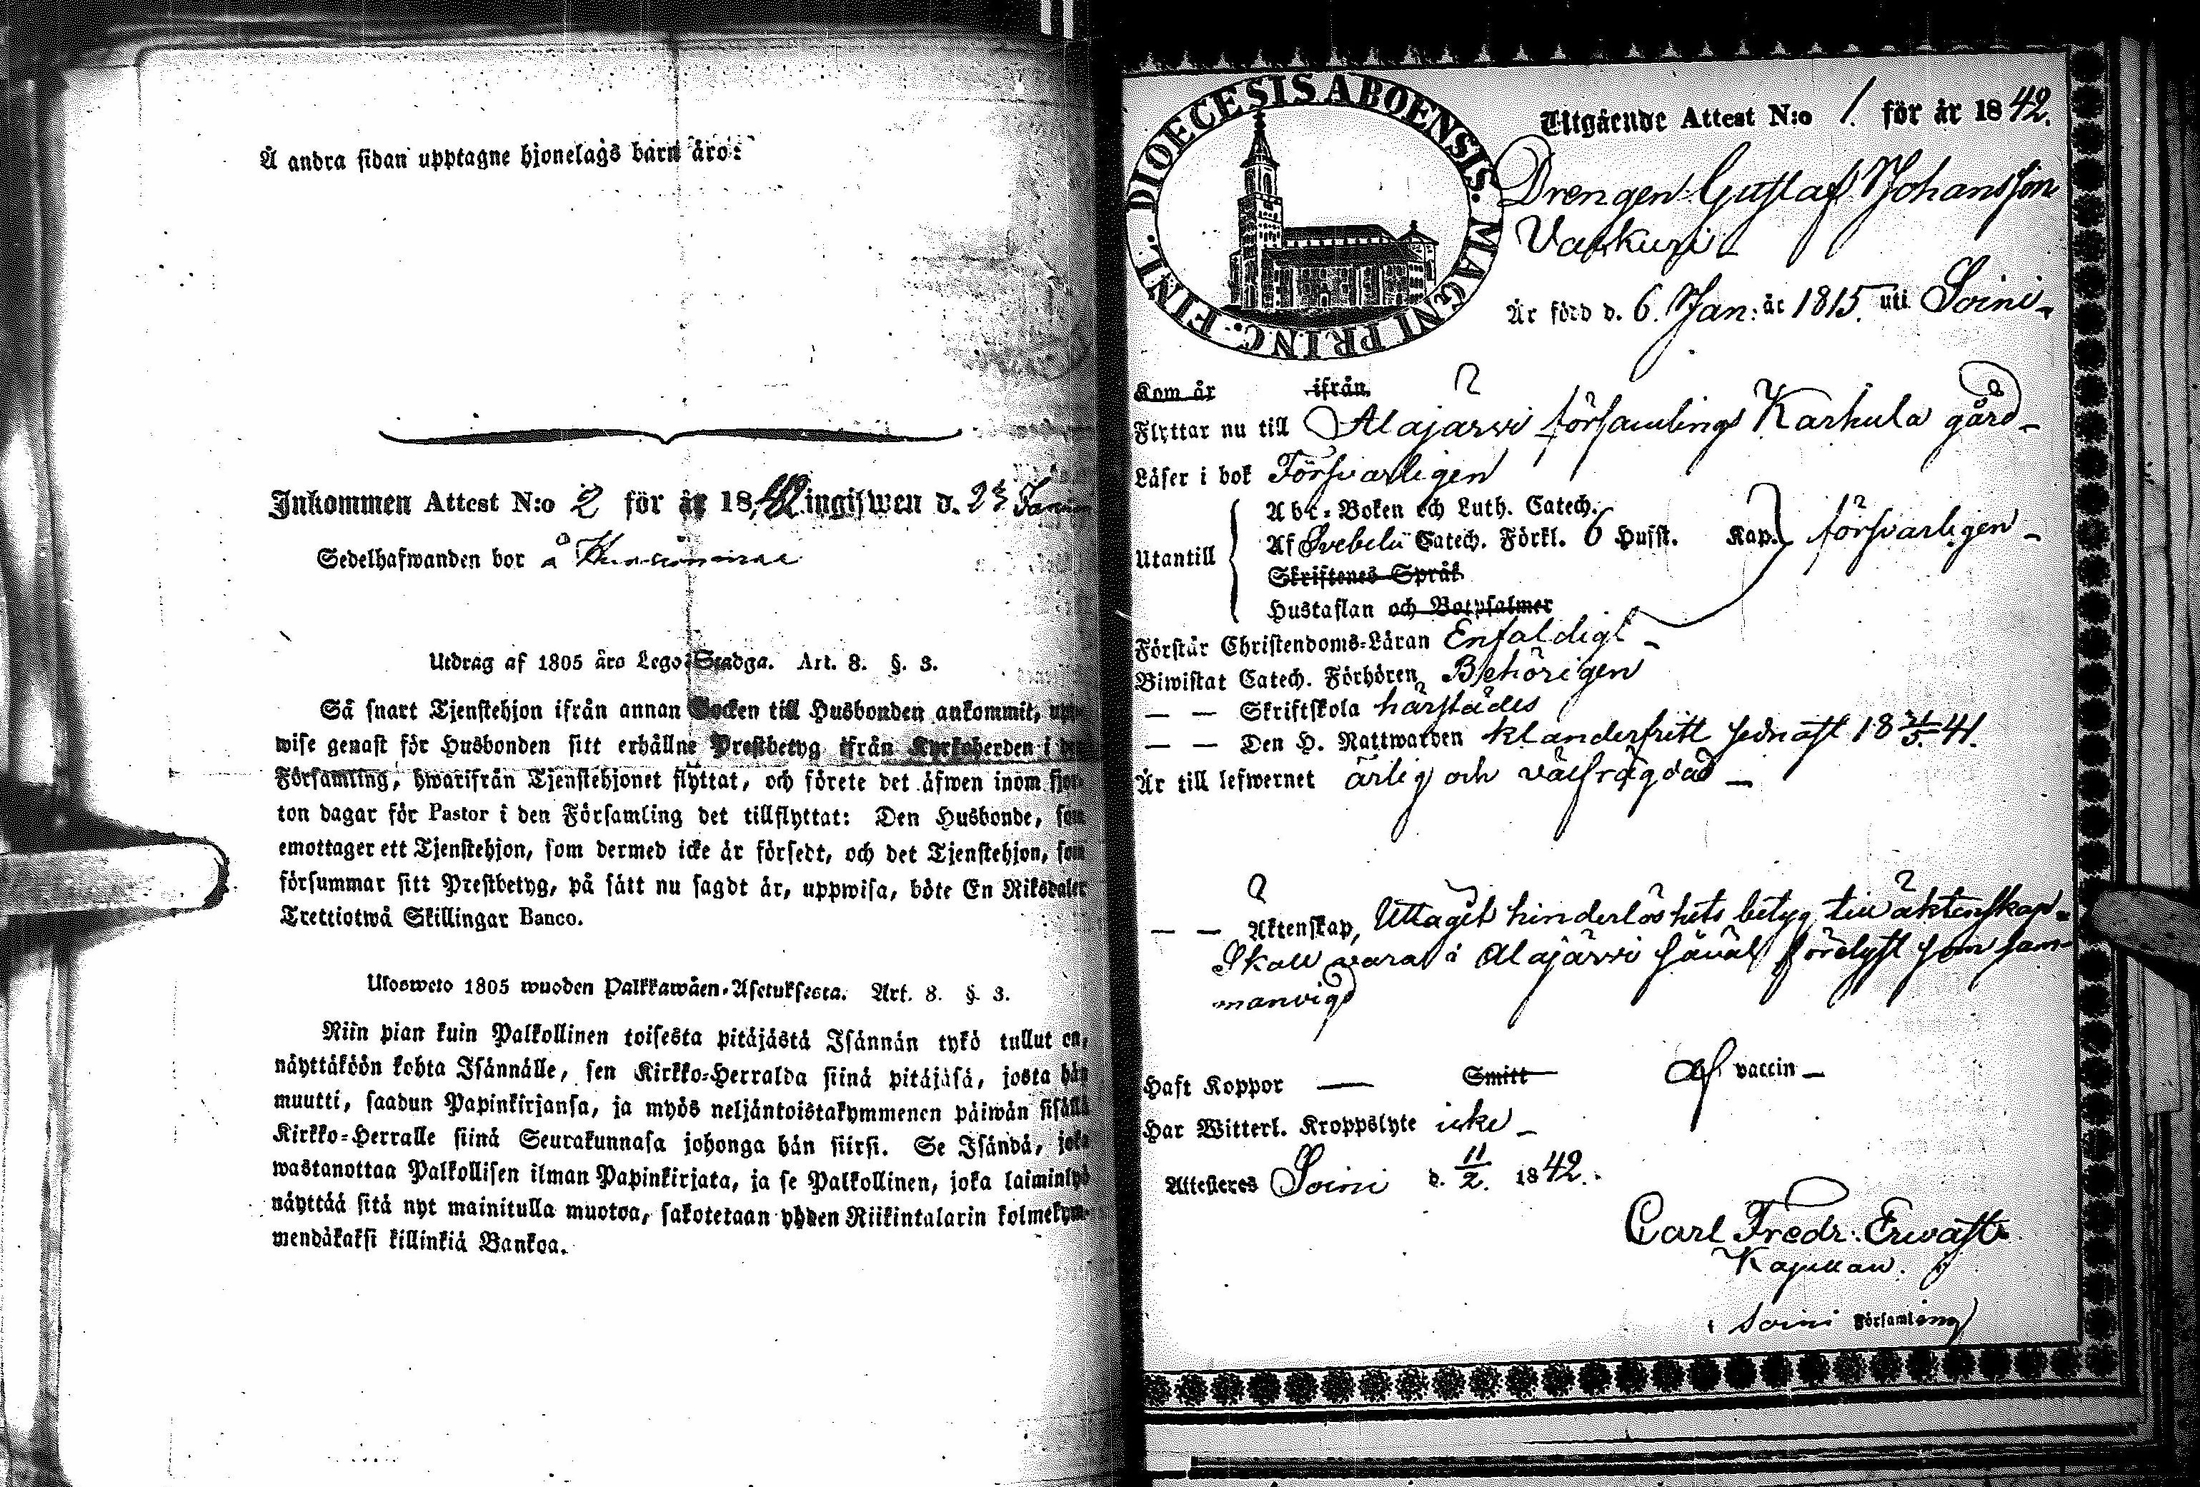 Å andra sidan upptagne hjonelags barn äro:
Inkommen Attest N:o 2 för år 1842 ingifwen d. 23
Sedelhafwanden bor å
Utdrag af 1805 års Lego-Stadga. Art. 8. §. 3.
Så snart Tjenstehjon ifrån annan Socken till Husbonden ankommit, upp-
wise genast för Husbonden sitt erhållne Prestbetyg ifrån Kyrkoherden i den
Församling, hwarifrån Tjenstehjonet flyttat, och förete det äfwen inom fjor-
ton dagar för Pastor i den Församling det tillflyttat: Den Husbonde, som
emottager ett Tjenstehjon, som dermed icke är försedt, och det Tjenstehjon, som
försummar sitt Prestbetyg, på sätt nu sagdt är, uppwisa, böte En Riksdaler
Trettiotwå Skillingar Banco.
Ulosweto 1805 wuoden Palkkawäen-Asetuksesta. Art. 8. §. 3.
Niin pian kuin Palkollinen toisesta pitäjästä Isännän tykö tullut on,
näyttäköön kohta Isännälle, sen Kirkko-Herralda siinä pitäjäsä, josta hän
muutti, saadun Papinkirjansa, ja myös neljäntoistakymmenen päiwän sisällä
Kirkko-Herralle siinä Seurakunnasa johonga hän siirsi. Se Isändä, joka
wastanottaa Palkollisen ilman Papinkirjata, ja se Palkollinen, joka laiminlyö
näyttää sitä nyt mainitulla muotoa, sakotetaan yhden Riikintalarin kolmekym-
mendäkaksi killinkiä Bankoa.
DIOECESIS ABOENSIS. MAGNI PRINC. FINL.
Utgående Attest N:o 1. för år 1842.
Drengen Gustaf Johansson
Är född d. 6. Jan: år 1815. uti Soini
Kom år ifrån
Flyttar nu till Alajärvi församlings Karhula gård
Läser i bok Försvarligen
Abc-Boken och Luth. Catech.
Utantill Af Svebelii Catech. Förkl. 6 Hufst. Kap. försvarligen
Skriftenes Språk
Hustaflan och Botpsalmer
Förstår Christendoms-Läran Enfaldigt
Biwistat Catech. Förhören Behörigen
— — Skriftskola härstädes
— — Den H. Nattwarden klanderfritt sednast 18 41.
Är till lefwernet ärlig och välfrägdad
— — Äktenskap, Uttaget hinderlöshets betyg till äktenskap
Skall vara i Alajärvi såväl förelyst som sam-
manvigd
Haft Koppor — Smitt af vaccin
Har Witterl. Kroppslyte icke
Attesteres Soini d. 11/2. 1842.
Carl Fredr: Erwast
Kapellan.
i Soini Församling